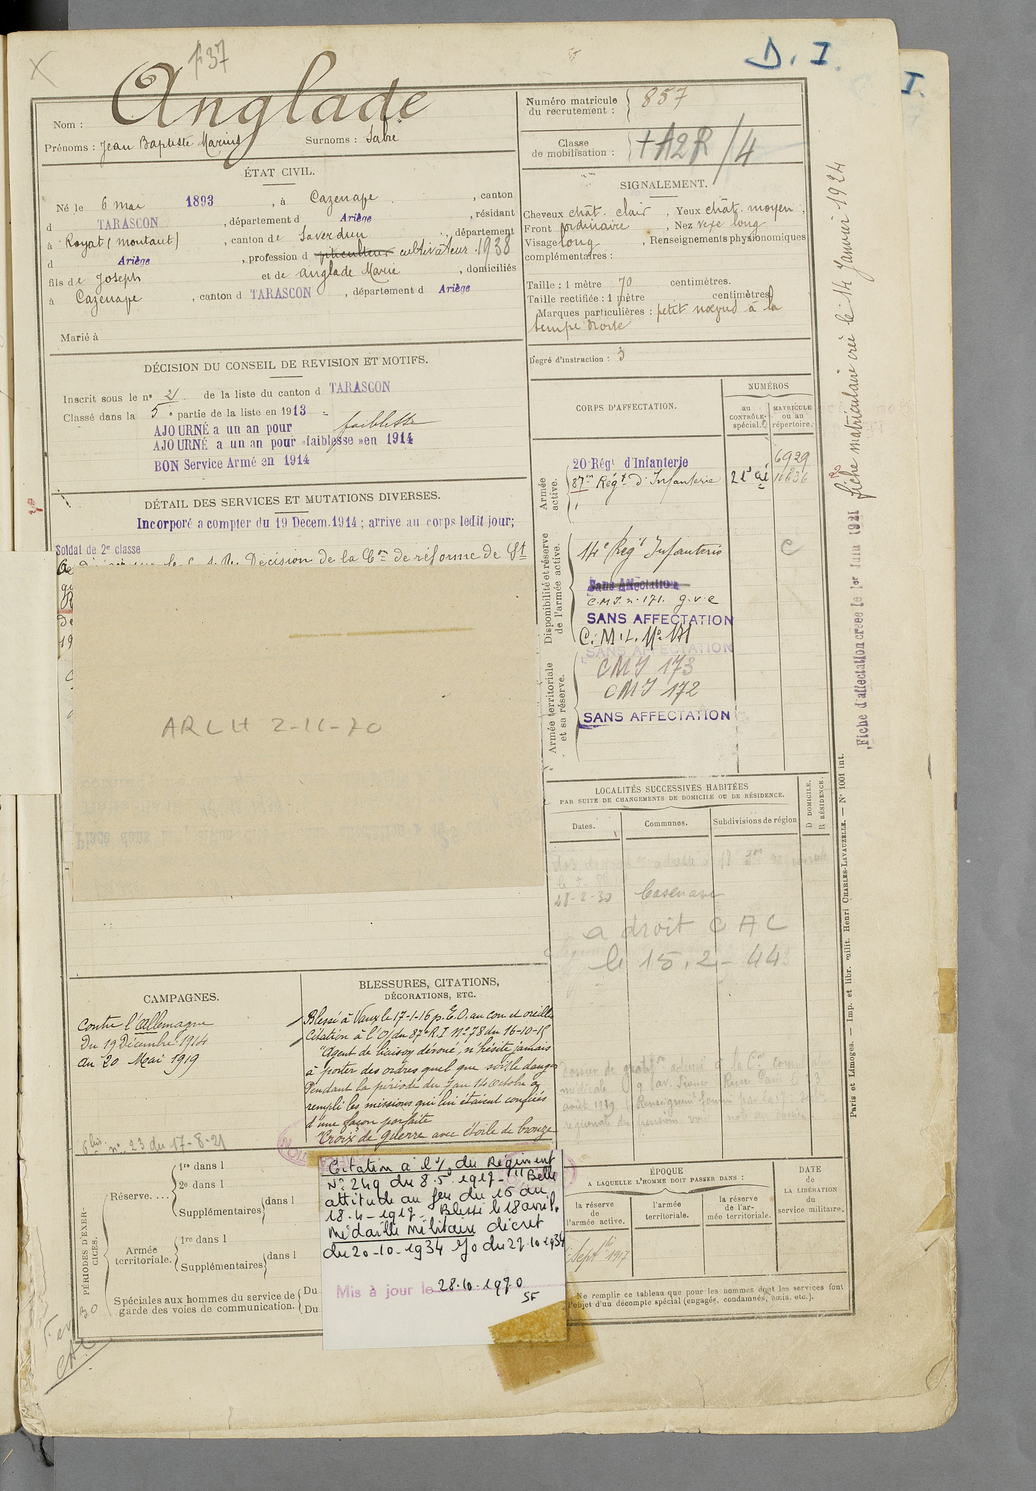 X
F 37
D. I.
I.
Anglade
Nom :
Prénoms : Jean Baptiste Marius Surnoms : Sabré
Numéro matricule du recrutement : 857
Classe de mobilisation : +A2R/4
ÉTAT CIVIL.
Né le 6 mai 1893, à Cazenave, canton
d TARASCON, département d Ariège, résidant
à Royat (Montaut), canton de Saverdun, département
d Ariège, profession d cultivateur 1938
fils de Joseph et de Anglade Marie, domiciliés
à Cazenave, canton d TARASCON, département d Ariège
Marié à
SIGNALEMENT.
Cheveux chât. clair, Yeux chât. moyen,
Front ordinaire, Nez vexe long
Visage long, Renseignements physionomiques
complémentaires :
Taille : 1 mètre 70 centimètres.
Taille rectifiée : 1 mètre centimètres
Marques particulières : petit nœud à la
tempe droite
Degré d'instruction : 3
DÉCISION DU CONSEIL DE REVISION ET MOTIFS.
Inscrit sous le n° 21 de la liste du canton d TARASCON
Classé dans la 5e partie de la liste en 1913
AJOURNÉ a un an pour faiblesse
AJOURNÉ a un an pour «faiblesse» en 1914
BON Service Armé en 1914
CORPS D'AFFECTATION.
NUMÉROS
au CONTRÔLE spécial.
MATRICULE ou au répertoire.
Armée active.
20 Régt d'Infanterie 6929
87me Régt d'Infanterie 21e Cie 16836
Disponibilité et réserve de l'armée active.
14e Régt Infanterie C
Sans Affectation
C.M.I. n° 171. g.v.c
SANS AFFECTATION
C.M.I. N° 171
SANS AFFECTATION
Armée territoriale et sa réserve.
CMI 173
CMI 172
SANS AFFECTATION
Fiche matriculaire créé le 14 Janvier 1924
Fiche d'affectation créée le 1er Juin 1921
DÉTAIL DES SERVICES ET MUTATIONS DIVERSES.
Incorporé a compter du 19 Decem. 1914 ; arrive au corps ledit jour;
Soldat de 2e classe
Décision de la Con de réforme de St
ARLH 2-11-70
LOCALITÉS SUCCESSIVES HABITÉES
PAR SUITE DE CHANGEMENTS DE DOMICILE OU DE RÉSIDENCE.
Dates.
Communes.
Subdivisions de région
D DOMICILE.
R RÉSIDENCE.
28-2-30 Casenave
a droit CAC
le 15.2-44
CAMPAGNES.
Contre l'Allemagne
Du 19 Décembre 1914
au 20 Mai 1919
n° 23 du 17-8-21
BLESSURES, CITATIONS,
DÉCORATIONS, ETC.
Blessé à Vaux le 17-1-16 p. E.O. au cou et oreille
Citation à l'O/ du 87e R.I. N° 78 du 16-10-18
"Agent de liaison dévoué, n'hésite jamais
à porter des ordres quel que soit le danger
Pendant la période du 9 au 14 octobre a
rempli les missions qui lui étaient confiées
d'une façon parfaite
Croix de Guerre avec étoile de bronze
Citation à l'O/ du Régiment
N° 249 du 8.5.1917 - "Belle
attitude au feu du 16 au
18.4-1917. Blessé le 18 avril.
Médaille Militaire décret
du 20-10-1934 J/o du 27.10.1934
Mis à jour le 28.10.1970
SF
PÉRIODES D'EXERCICES.
Réserve....
1re dans l
2e dans l
Supplémentaires dans l
Armée territoriale.
1re dans l
Supplémentaires dans l
Spéciales aux hommes du service de garde des voies de communication.
Du
Du
ÉPOQUE
A LAQUELLE L'HOMME DOIT PASSER DANS :
la réserve de l'armée active.
l'armée territoriale.
la réserve de l'armée territoriale.
DATE DE LA LIBÉRATION du service militaire.
Septbre 1917
Ne remplir ce tableau que pour les hommes dont les services font
l'objet d'un décompte spécial (engagés, condamnés, omis, etc.).
Paris et Limoges. — Imp. et libr. milit. Henri CHARLES-LAVAUZELLE. — N° 1001 int.